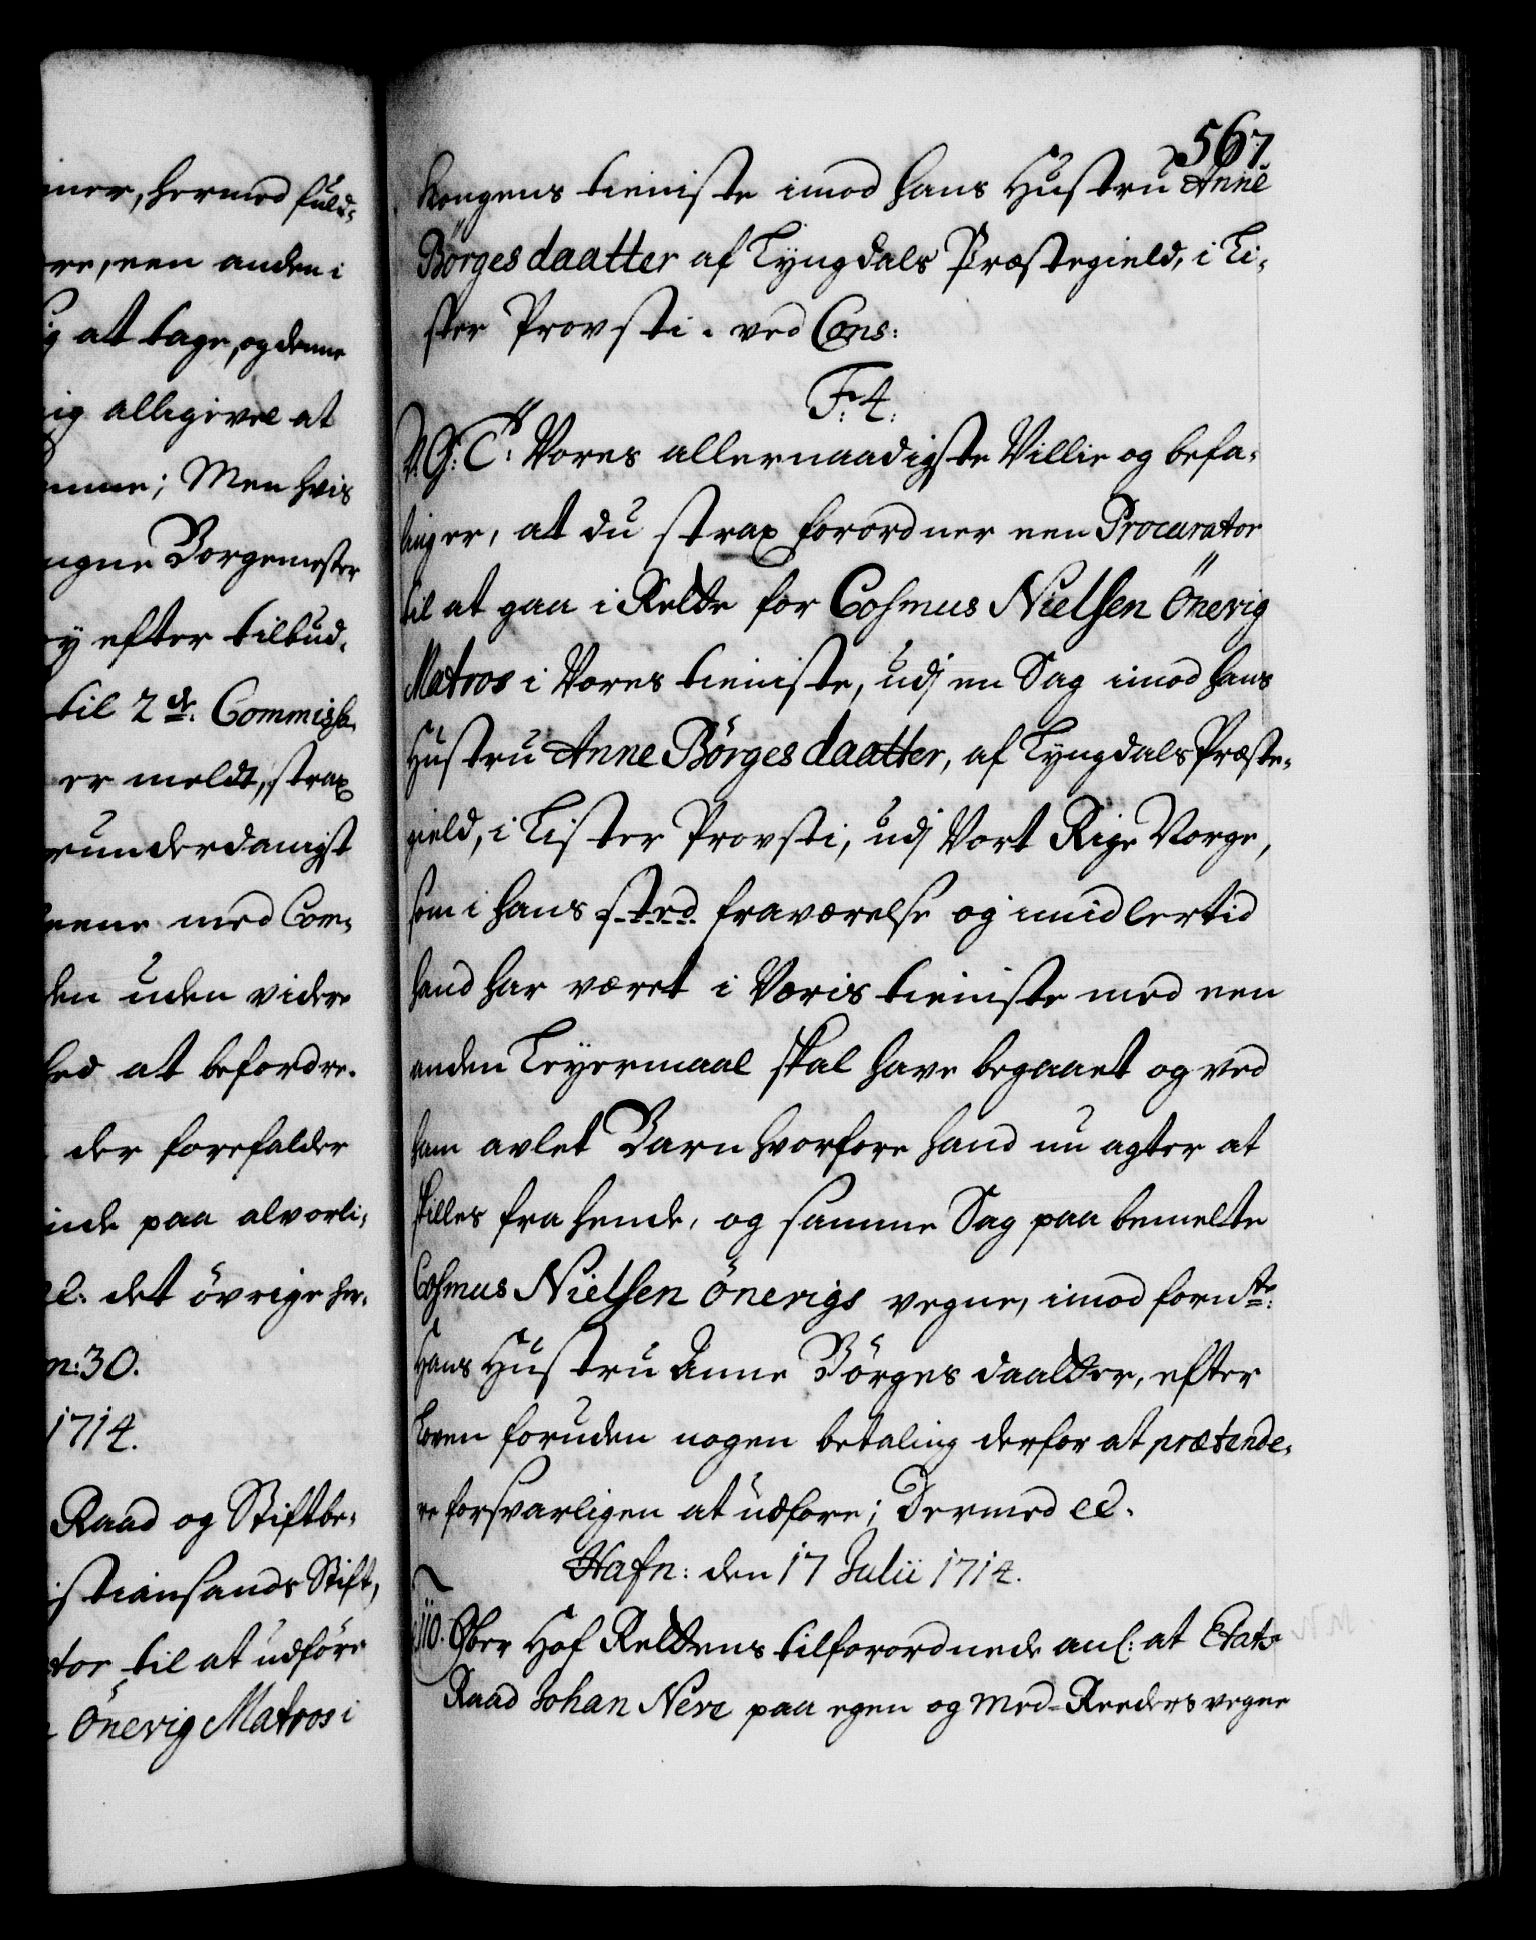 iner, hermed fuld-
re, een anden i
at tage, og denne
ig allegivel at
mme; Men hvis
ugne Borgemester
y efter tilbud-
til 2de. Commisha
er meldt, strax
underdanigst
eene med Com-
den uden videre
hed at befordre.
der forefalder
inde paa alvorli-
el. det övrige her-
n: 30.
1714.
Raad og Stiftbe-
istiansands Stift,
tor til at udföre
Önerig Matros i
567.
Kongens tieniste imod hans Hustru Anne
Börges daatter af Lyngdals Præstegield, i Li-
ster Provsti. ved Cons:
F. 4.
V. G: T: Vores allernaadigste Villie og befa-
ling er, at du strax forordner een Procurator
til at gaa i Rette for Cosmus Nielsen Önerig
Matros i Vores tieniste, udj en Sag imod hans
Hustru Anne Börges daatter, af Lyngdals Præste-
gield, i Lister Provsti, udj Vort Rige Norge,
som i hans sted fraværelse og imidlertid
hand har været i Voris tieniste med een
anden Leyermaal skal have begaaet og ved
ham avlet Barn hvorfore hand nu agter at
skilles fra hende, og samme Sag paa bemelte
Cosmus Nielsen Önerigs vegne, imod fornte:
Hans Hustru Anne Börges daatter, efter
Loven foruden nogen betaling derfor at prætende-
re forsvarligen at udføre; Dermed el.
Hafn: den 17 Julii 1714.
110. Ober Hof Rettens tilforordnede anl: at Etats
Raad Johan Nere paa egen og Med-Reeders vegne